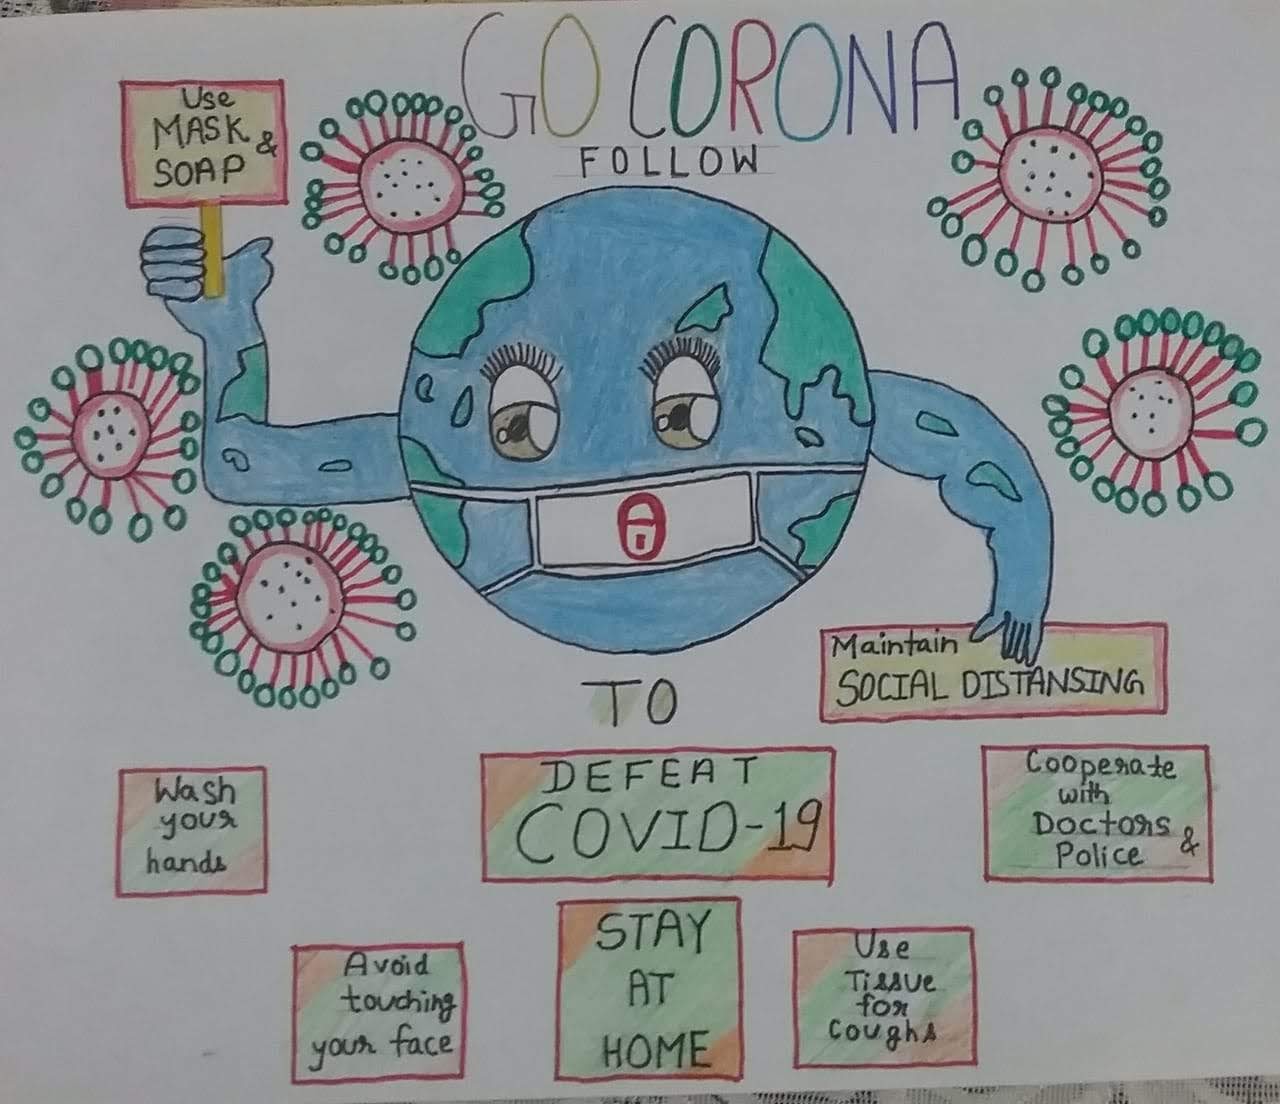 GO CORONA
FOLLOW
Use
MASK &
SOAP
TO
Maintain
SOCIAL DISTANSING
DEFEAT
COVID-19
Wash
your
hands
Cooperate
with
Doctors &
Police
STAY
AT
HOME
Avoid
touching
your face
Use
Tissue
for
Coughs